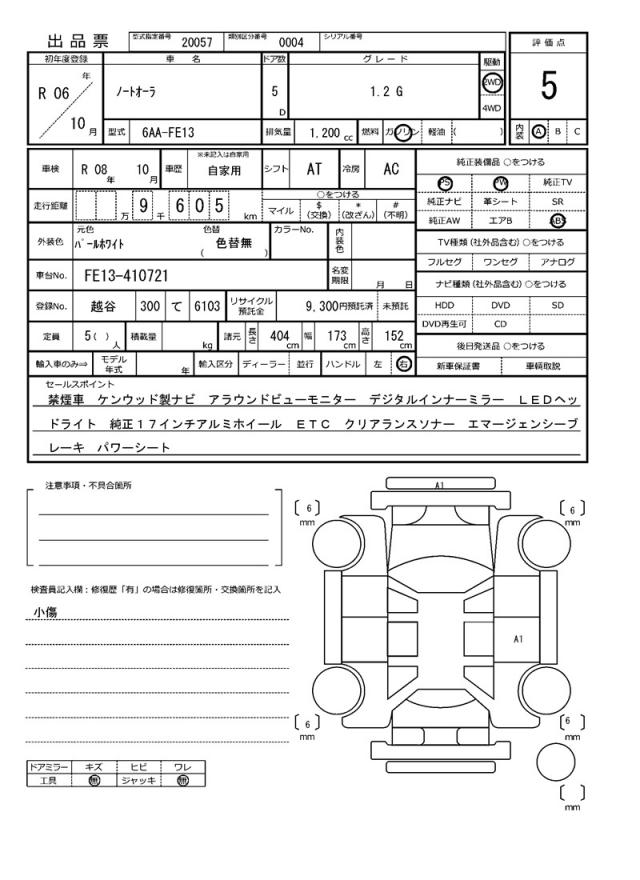 出品票 型式指定番号 20057 類別区分番号 0004 シリアル番号
評価点
5
内装 A B C
初年度登録 車名 ドア数 グレード 駆動
R 06 年 10 月 ノートオーラ 5 D 1.2 G 2WD 4WD
型式 6AA-FE13 排気量 1.200 cc 燃料 ガソリン 軽油 ( )
車検 R 08 年 10 月 車歴 ※未記入は自家用 自家用 シフト AT 冷房 AC
走行距離 万 9 千 6 0 5 km ○をつける マイル $(交換) *(改ざん) #(不明)
外装色 元色 パールホワイト 色替 ( 色替無 ) カラーNo. 内装色
車台No. FE13-410721 名変期限 月 日
登録No. 越谷 300 て 6103 リサイクル預託金 9,300円預託済 未預託
定員 5( )人 積載量 kg 諸元 長さ 404 cm 幅 173 cm 高さ 152 cm
輸入車のみ⇒ モデル年式 年 輸入区分 ディーラー 並行 ハンドル 左 右
純正装備品 ○をつける
PS PW 純正TV
純正ナビ 革シート SR
純正AW エアB ABS
TV種類(社外品含む)○をつける
フルセグ ワンセグ アナログ
ナビ種類(社外品含む)○をつける
HDD DVD SD
DVD再生可 CD
後日発送品 ○をつける
新車保証書 車輌取説
セールスポイント
禁煙車 ケンウッド製ナビ アラウンドビューモニター デジタルインナーミラー LEDヘッ
ドライト 純正17インチアルミホイール ETC クリアランスソナー エマージェンシーブ
レーキ パワーシート
注意事項・不具合箇所
検査員記入欄:修復歴「有」の場合は修復箇所・交換箇所を記入
小傷
ドアミラー キズ ヒビ ワレ
工具 無 ジャッキ 無
A1
[ 6 ] mm
[ 6 ] mm
A1
[ 6 ] mm
[ 6 ] mm
[ ] mm